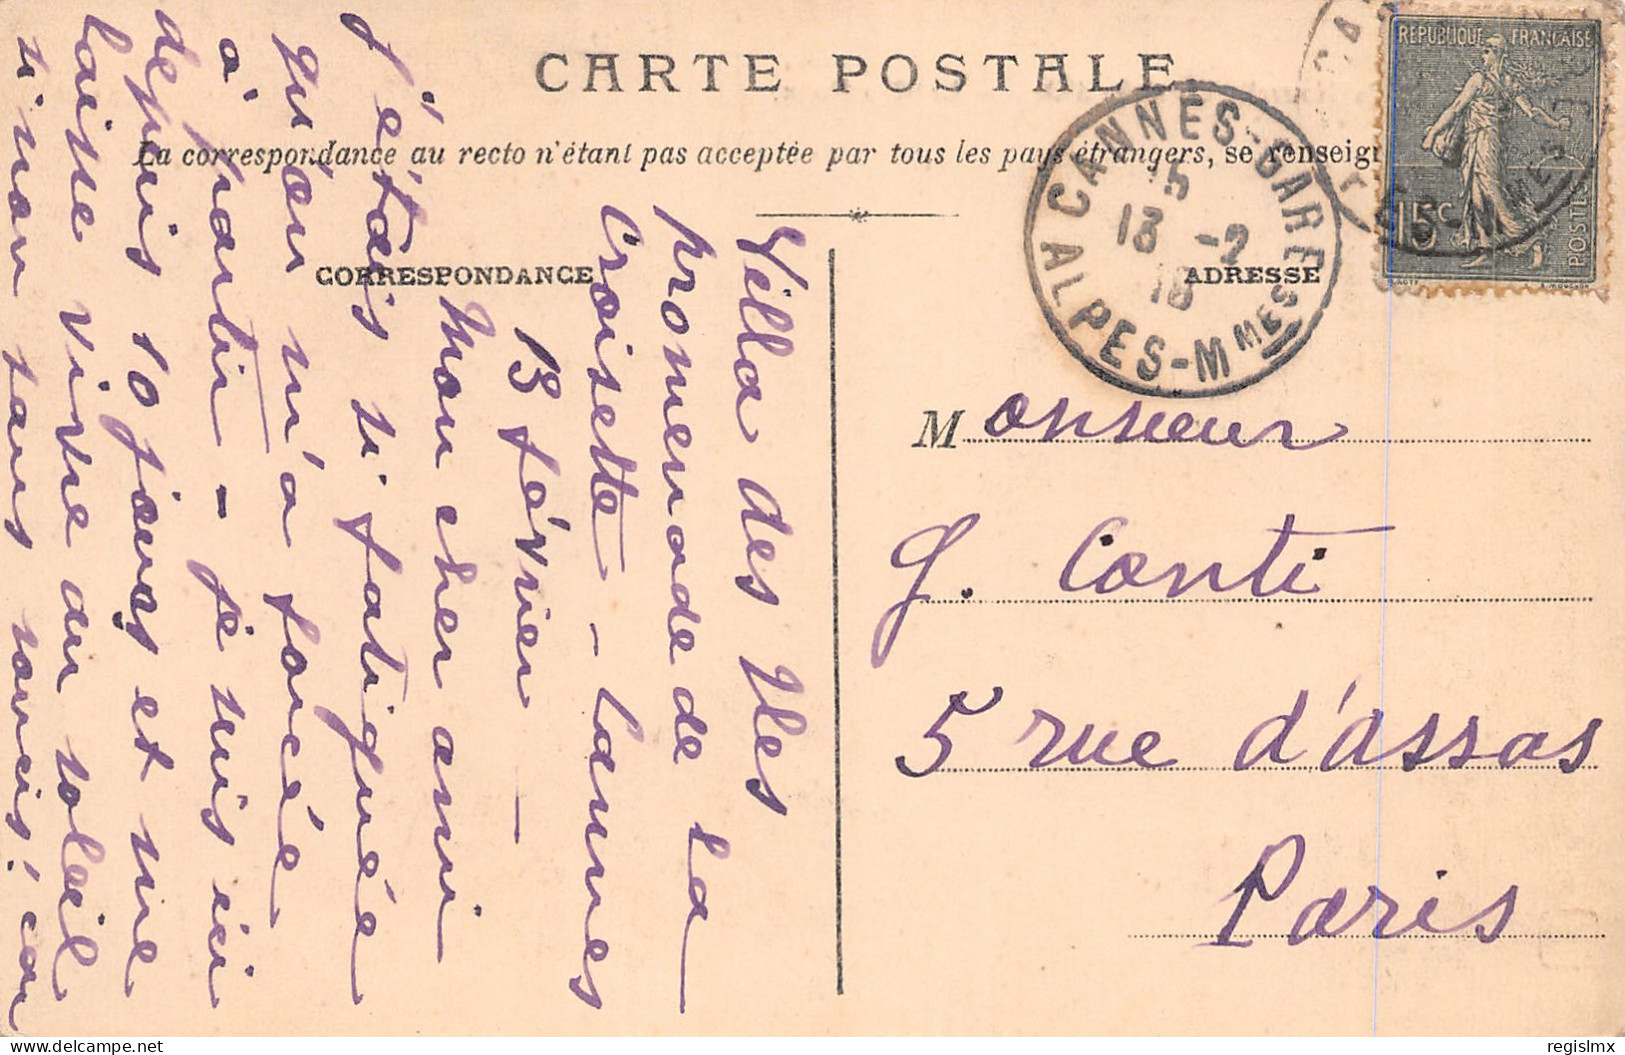 CARTE POSTALE
La correspondance au recto n'étant pas acceptée par tous les pays étrangers, se renseign
CORRESPONDANCE
ADRESSE
REPUBLIQUE FRANÇAISE
15c
POSTES
CANNES-GARE
15
13 -2
18
ALPES-MMES
Villa des Iles
promenade de la
Croisette - Cannes
13 février -
Mon cher ami
j'étais si fatiguée
qu'on m'a forcée
à partir - je suis ici
depuis 10 jours et me
laisse vivre au soleil
si non sans soucis! car
Monsieur
G. Conti
5 rue d'assas
Paris
delcampe.net
regislmx